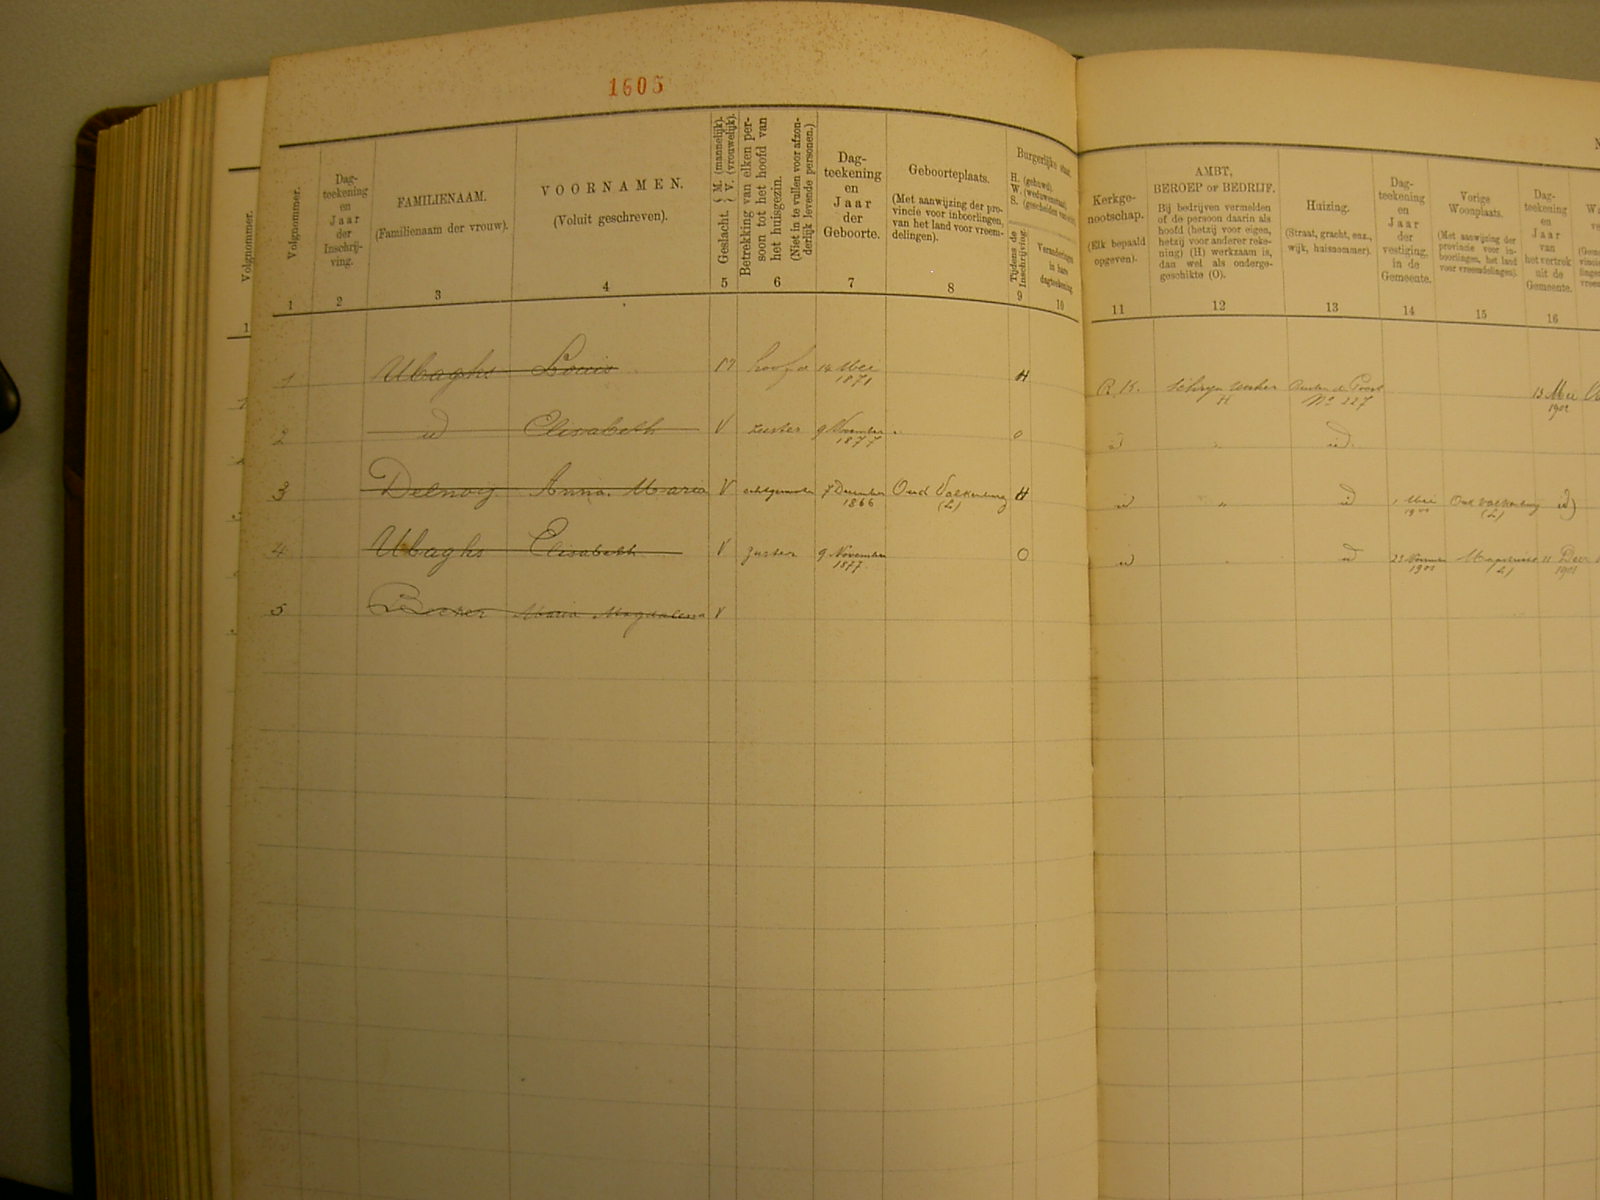 1605
Volgnommer.
1
Volgnommer.
1
Dag-
teekening
en
Jaar
der
Inschrij-
ving.
2
FAMILIENAAM.
(Familienaam der vrouw).
3
VOORNAMEN.
(Voluit geschreven).
4
Geslacht. { M. (mannelijk). V. (vrouwelijk).
5
Betrekking van elken per-
soon tot het hoofd van
het huisgezin.
(Niet in te vullen voor afzon-
derlijk levende personen.)
6
Dag-
teekening
en
Jaar
der
Geboorte.
7
Geboorteplaats.
(Met aanwijzing der pro-
vincie voor inboorlingen,
van het land voor vreem-
delingen).
8
Burgerlijke staat.
H. (gehuwd).
W. (weduwenstaat)
S. (gescheiden van echt)
Tijdens de
Inschrijving.
9
Veranderingen
in hare
dagteekening
10
Kerkge-
nootschap.
(Elk bepaald
opgeven).
11
AMBT,
BEROEP of BEDRIJF.
Bij bedrijven vermelden
of de persoon daarin als
hoofd (hetzij voor eigen,
hetzij voor anderer reke-
ning) (H) werkzaam is,
dan wel als onderge-
geschikte (O).
12
Huizing.
(Straat, gracht, enz.,
wijk, huisnommer).
13
Dag-
teekening
en
Jaar
der
vestiging,
in de
Gemeente.
14
Vorige
Woonplaats.
(Met aanwijzing der
provincie voor in-
boorlingen, het land
voor vreemdelingen).
15
Dag-
teekening
en
Jaar
van
het vertrek
uit de
Gemeente.
16
1 Ubaghs Louis M hoofd 14 Mei 1871 H R.K. H No 227 13 Mei 1901
2 id Elisabeth V zuster 9 November 1877 O id " id
3 Delnoy Anna Maria V echtgenoote 7 December 1866 Oud Valkenburg (L) H id " id 1 Mei Oud Valkenburg (L) id
4 Ubaghs Elisabeth V zuster 9 November 1877. O id id (L) 1901
5 Maria Magdalena V